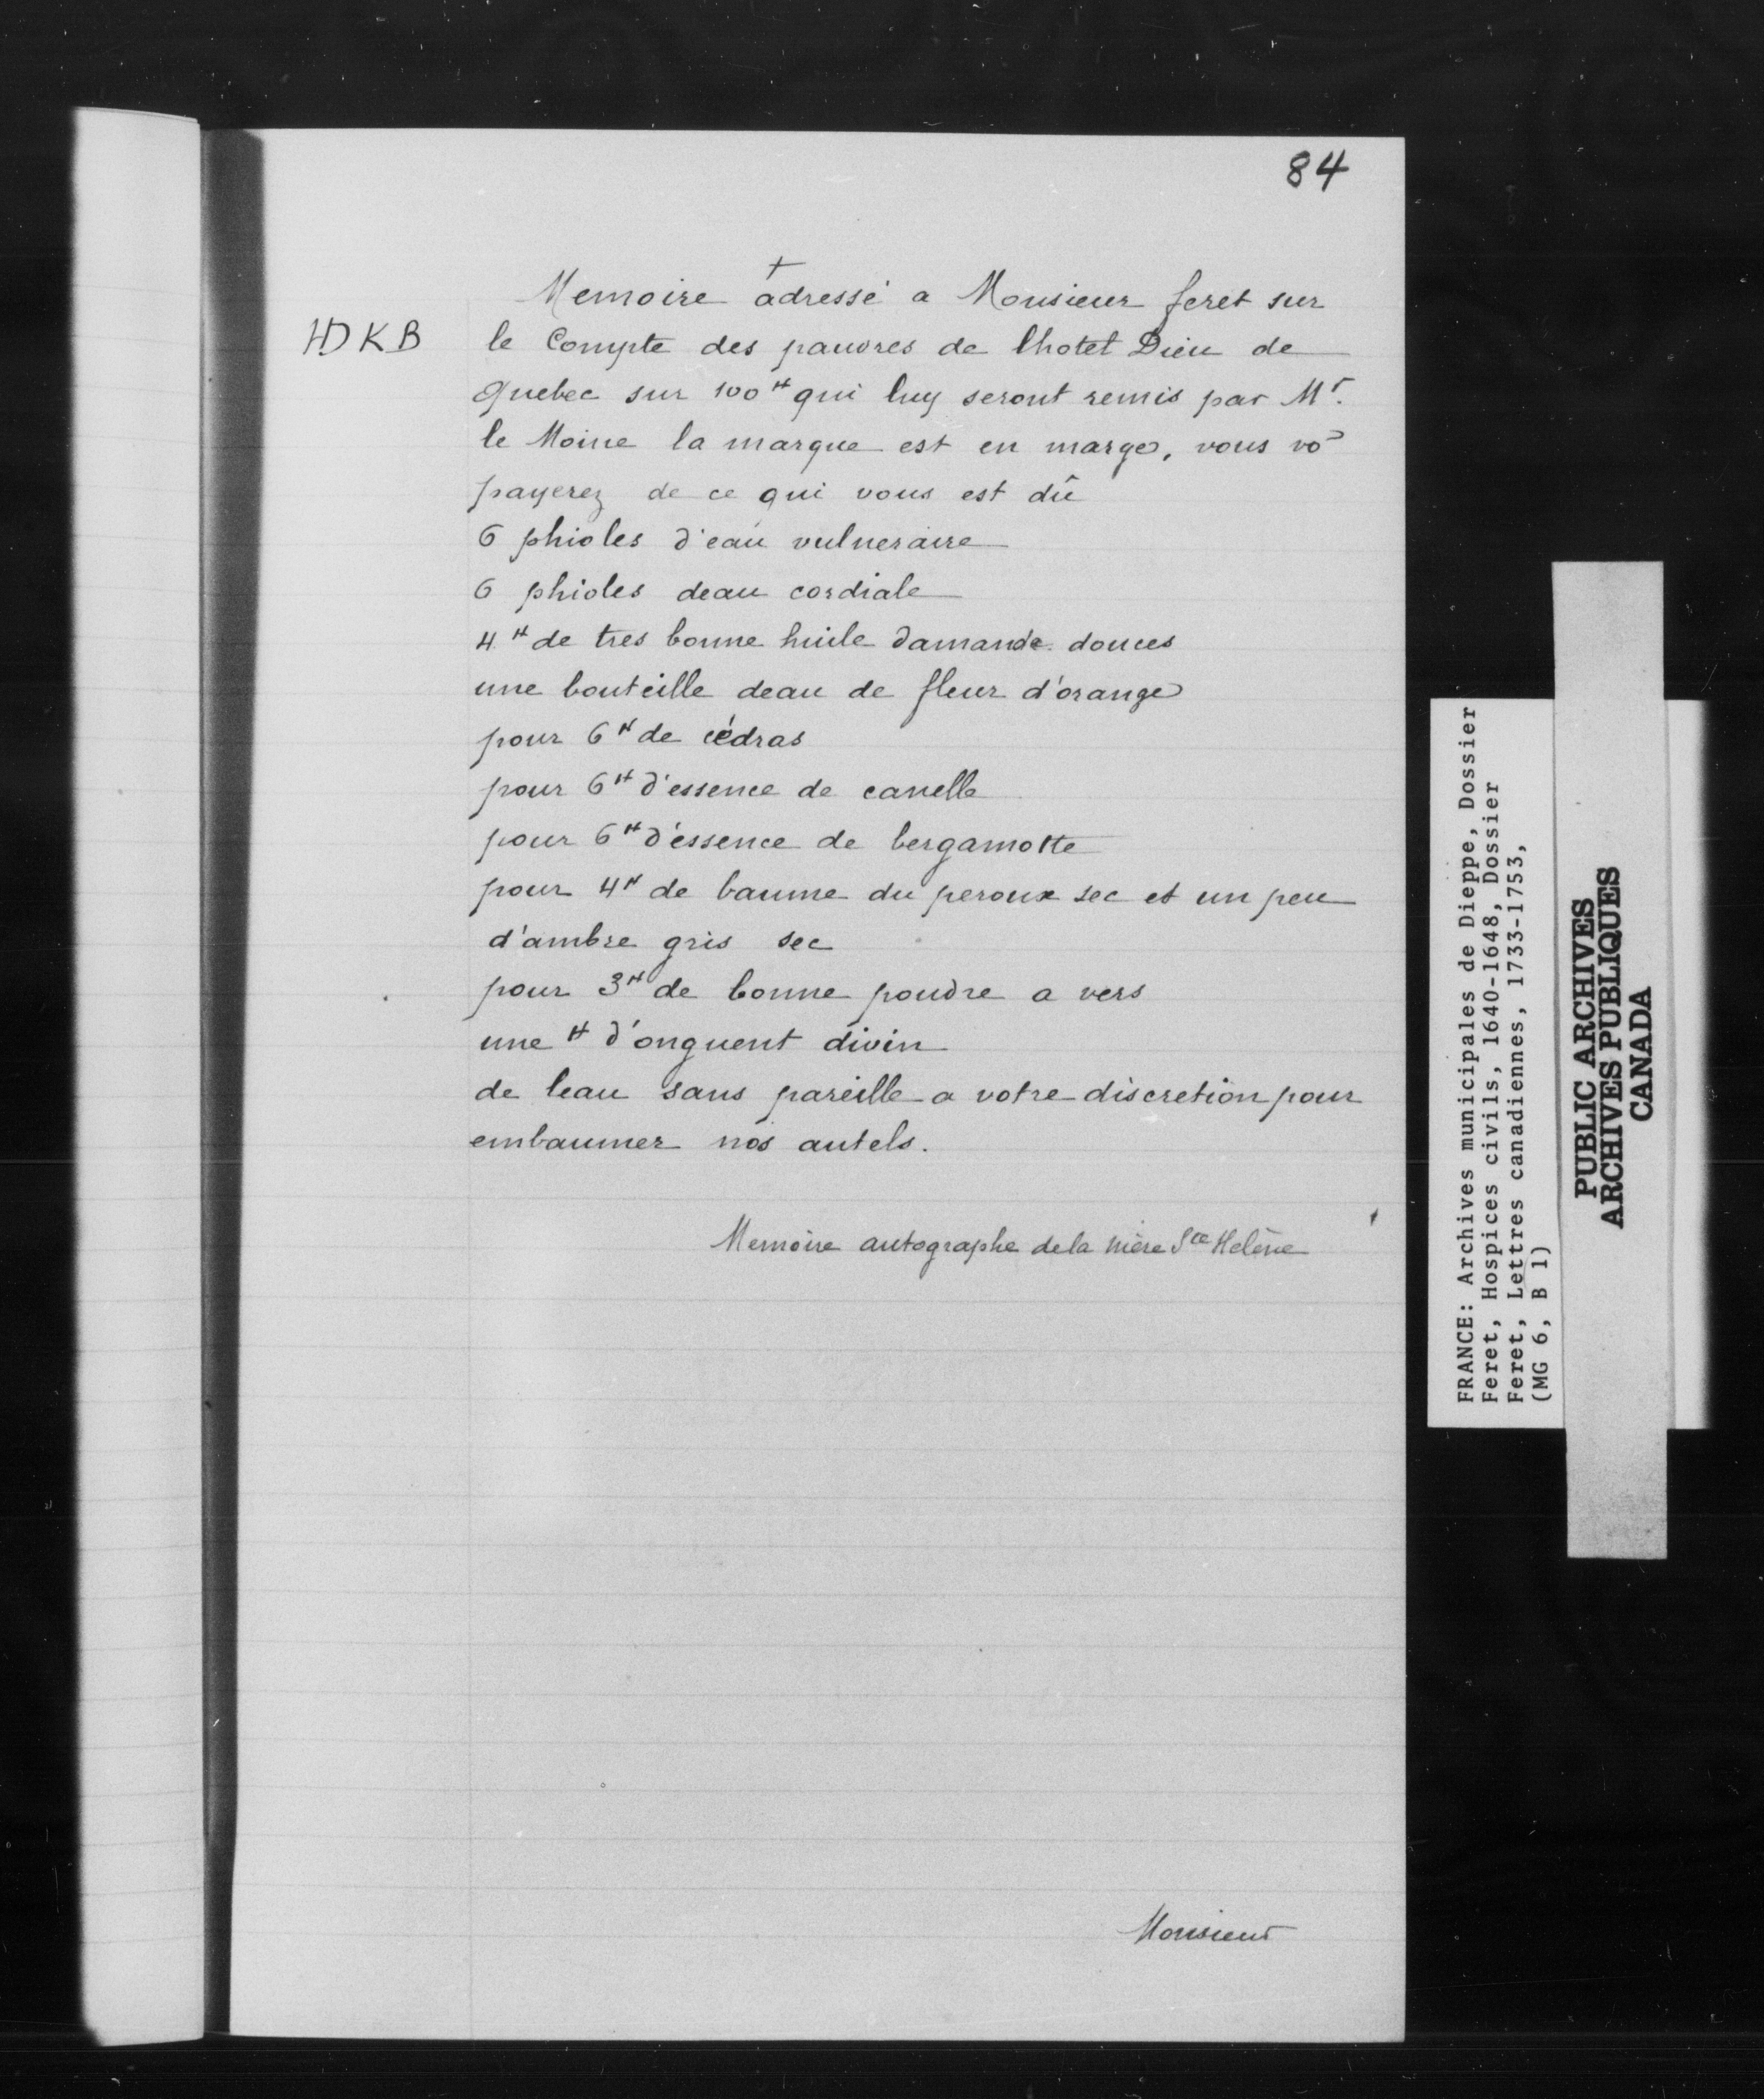 84
+
Memoire adressé a Monsieur feret sur
HD K B
le Compte des pauvres de lhotel Dieu de
Quebec sur 100ᴴ qui luy seront remis par Mʳ.
le Moine la marque est en marge, vous vo
payerez de ce qui vous est dû
6 phioles d'eau vulneraire
6 phioles deau cordiale
4ᴴ de tres bonne huile damande douces
une bouteille deau de fleur d'orange
pour 6ᴴ de cédras
pour 6ᴴ d'essence de canelle
pour 6ᴴ d'essence de bergamotte
pour 4ᴴ de baume du peroux sec et un peu
d'ambre gris sec
pour 3ᴴ de bonne poudre a vers
une ᴴ d'onguent divin
de leau sans pareille a votre discretion pour
embaumer nos autels.
Memoire autographe de la mère Sᵗᵉ Helène
Monsieur
FRANCE: Archives municipales de Dieppe, Dossier
Feret, Hospices civils, 1640-1648, Dossier
Feret, Lettres canadiennes, 1733-1753,
(MG 6, B 1)
PUBLIC ARCHIVES
ARCHIVES PUBLIQUES
CANADA